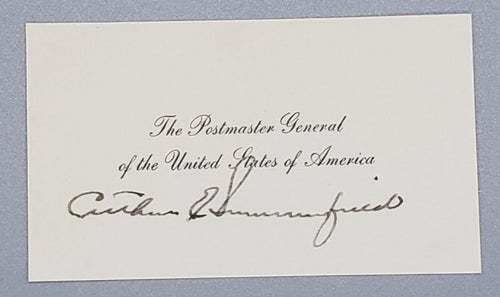 The Postmaster General
of the United States of America
Arthur E Summerfield